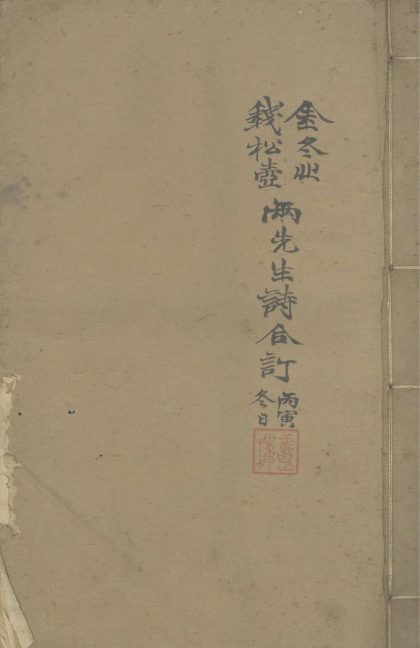 金冬心
錢松壺
兩先生詩合訂
丙寅
冬日